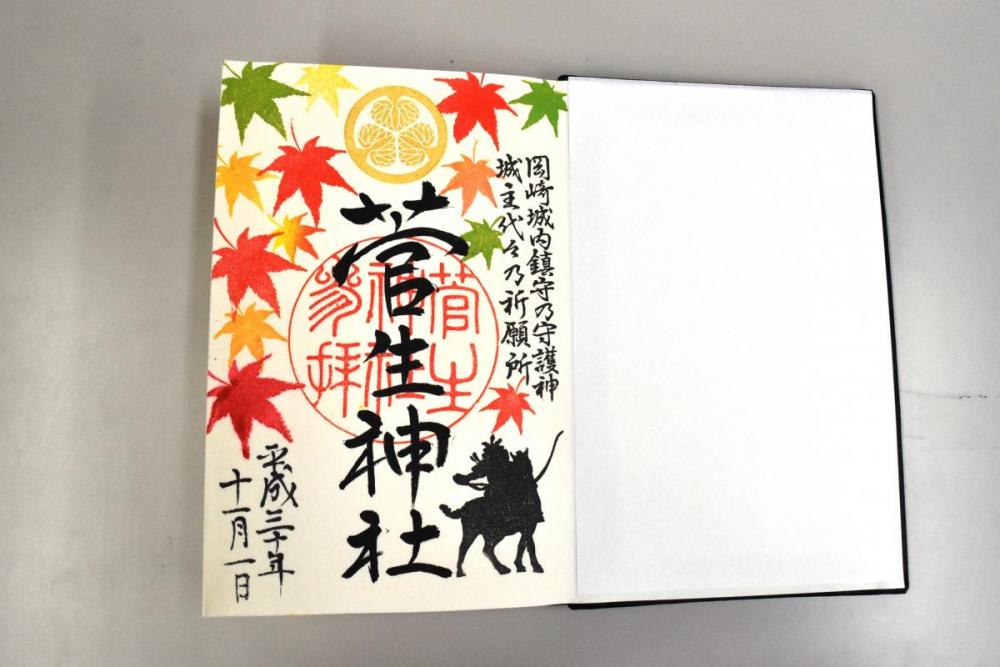 岡崎城内鎮守乃守護神
城主代々乃祈願所
菅生神社
菅生
神社
参拝
平成三十年
十一月一日